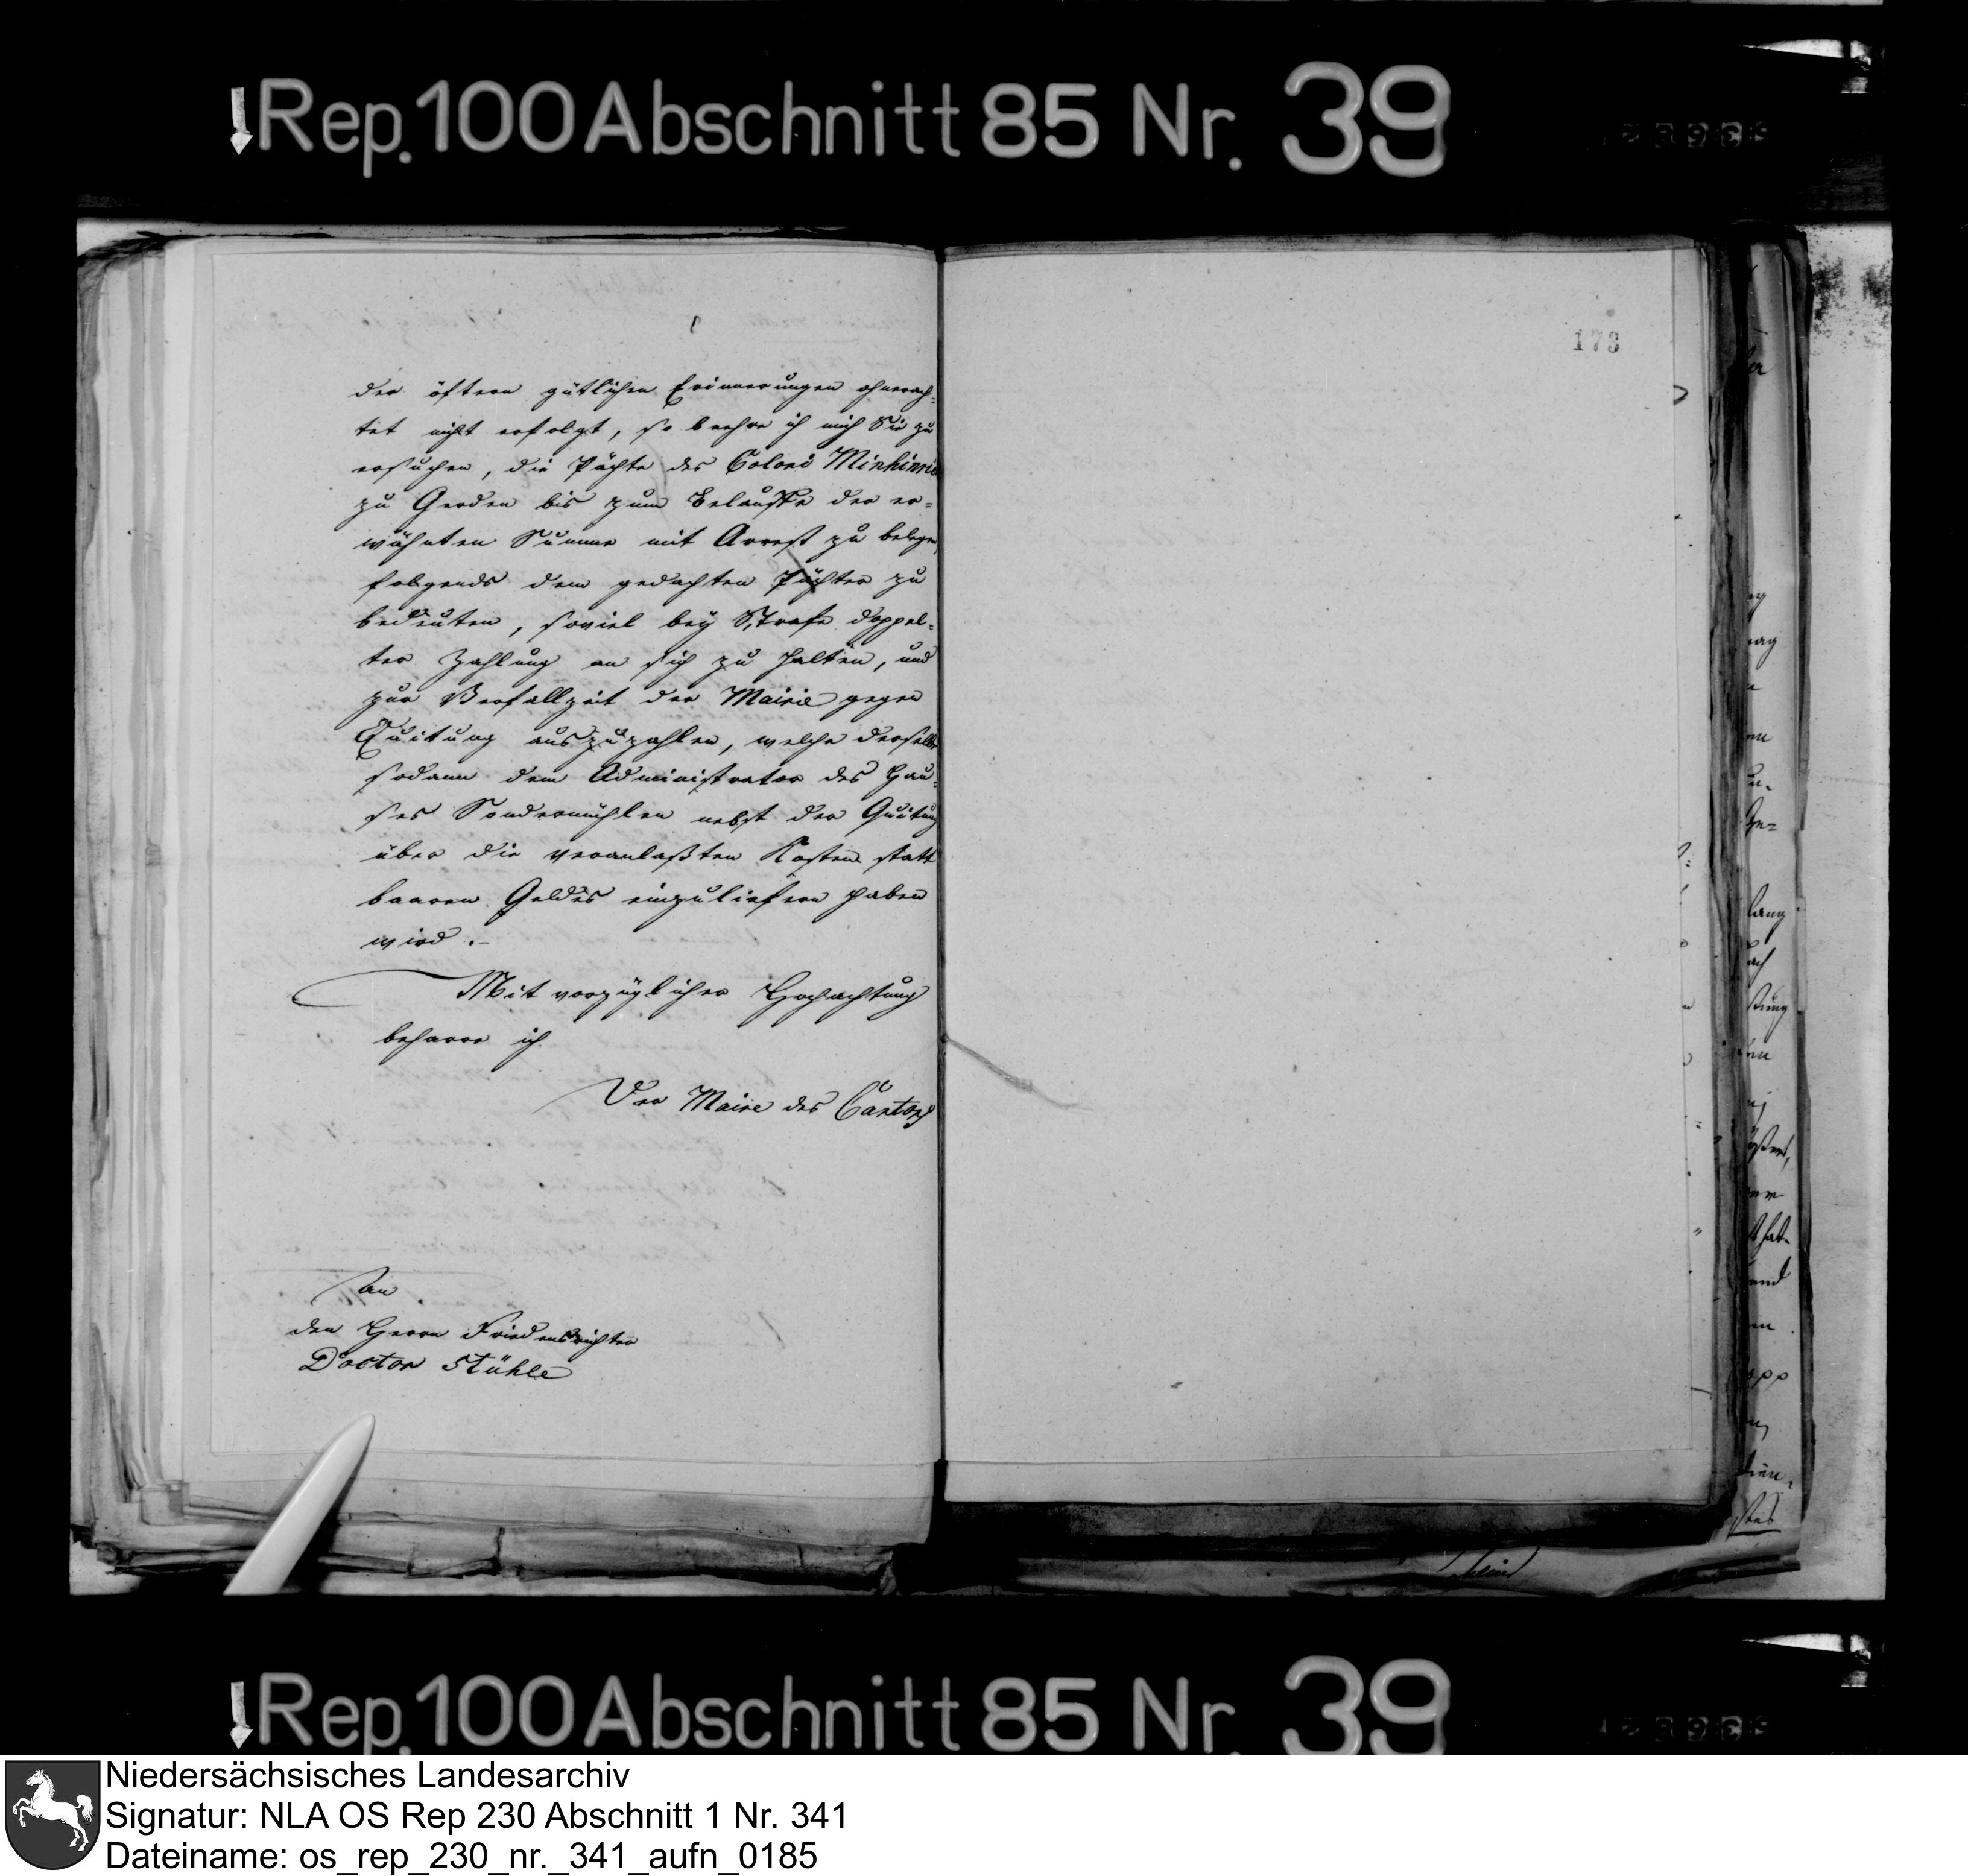 Rep. 100 Abschnitt 85 Nr. 39
173
der öftern gütlichen Erinnerungen ohnerach-
tet nicht erfolgt, so beehre ich mich Sie zu
ersuchen, die Pächte des Coloni
zu Gerden bis zum Belauffe der er-
wähnten Summe mit Arrest zu belegen
folgends dem gedachten Pächter zu
bedeuten, soviel bey Strafe doppel-
ter Zahlung an sich zu halten, und
zur Verfallzeit der Mairie gegen
Quitung auszuzahlen, welche derselbe
sodann dem Administrator des Hau-
ses Sondermühlen nebst der Quitung
über die veranlaßten Kosten statt
baaren Geldes einzuliefern haben
wird.-
Mit vorzüglicher Hochachtung
beharre ich
Der Maire des Cantons
An
den Herrn Friedensrichter
Doctor Stühle
Rep. 100 Abschnitt 85 Nr. 39
Niedersächsisches Landesarchiv
Signatur: NLA OS Rep 230 Abschnitt 1 Nr. 341
Dateiname: os_rep_230_nr._341_aufn_0185